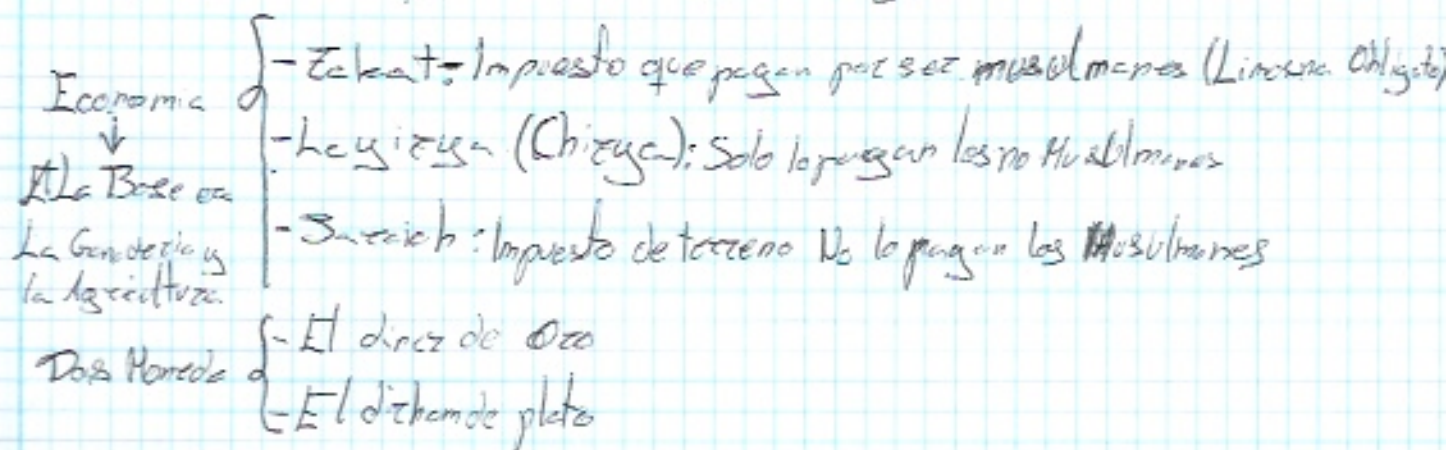 Economia
↓
La Base era
La Ganaderia y
la Agricultura.
- Zakat: Impuesto que pagan por ser musulmanes (Limosna Obligato)
- La yizya (Chizya): Solo lo pagan los no Musulmanes
: Impuesto de terreno No lo pagan los Musulmanes
Dos Moneda
- El dinar de Oro
- El dirham de plata